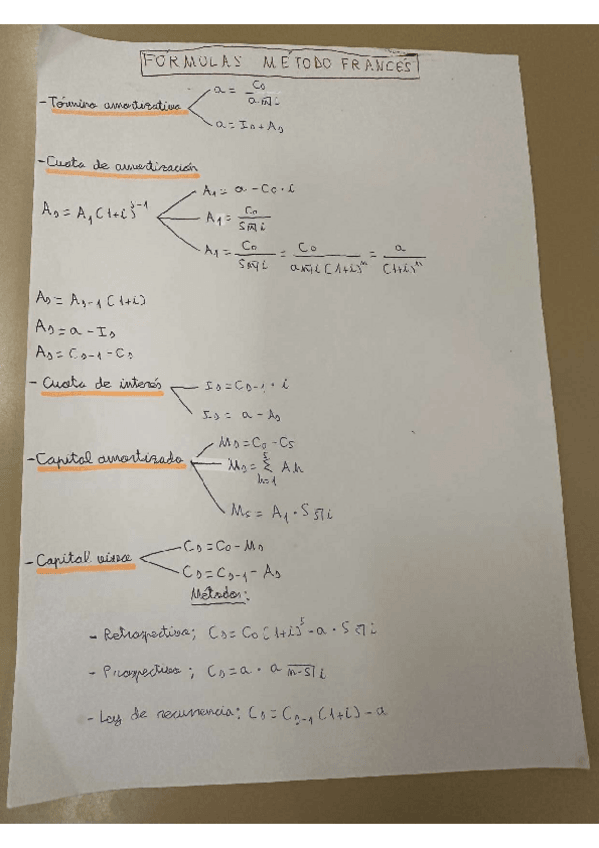 FÓRMULAS MÉTODO FRANCÉS
- Término amortizativo
a = C₀ / a n̅|i
a = Is + As
- Cuota de amortización
As = A₁(1+i)^s-1
A₁ = a - C₀ · i
A₁ = C₀ / S n̅|i
A₁ = C₀ / S n̅|i = C₀ / a n̅|i (1+i)^n = a / (1+i)^n
As = As-1 (1+i)
As = a - Is
As = Cs-1 - Cs
- Cuota de interés
Is = Cs-1 · i
Is = a - As
- Capital amortizado
Ms = C₀ - Cs
Ms = Σ Ah
s
h=1
Ms = A₁ · S s̅|i
- Capital vivo
Cs = C₀ - Ms
Cs = Cs-1 - As
Métodos:
- Retrospectivo; Cs = C₀(1+i)^s - a · S s̅|i
- Prospectivo; Cs = a · a n-s|i
- Ley de recurrencia: Cs = Cs-1 (1+i) - a